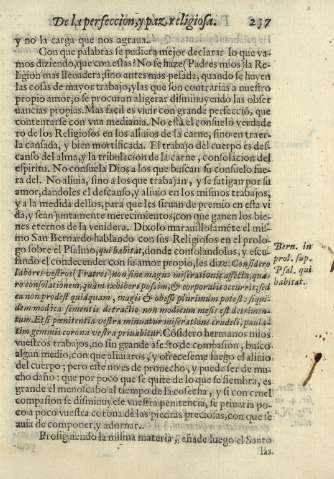 De la perfeccion, y paz religiosa. 237
y no la carga que nos agraua.
Con que palabras se pudiera mejor declarar lo que va-
mos diziendo, que con estas? No se haze (Padres mios) la Re-
ligion mas lleuadera, sino antes mas pesada, quando se huyen
las cosas de mayor trabajo, y las que son contrarias a nuestro
propio amor, o se procuran aligerar disminuyendo las obser
uancias propias. Mas facil es viuir con grande perfecció, que
contentarse con vna mediania. No está el consuelo verdade
ro de los Religiosos en los aliuios de la carne, sino en traer-
la cansada, y bien mortificada. El trabajo del cuerpo es des-
canso del alma, y la tribulacion de la carne, consolacion del
espiritu. No consuela Dios a los que buscan su consuelo fue-
ra del. No aliuia, sino a los que trabajan, y se fatigan por su
amor, dandoles el descanso, y aliuio en los mismos trabajos,
y a la medida dellos, para que les siruan de premio en esta vi
da, y sean juntamente merecimientos, con que ganen los bie-
nes eternos de la venidera. Dixolo marauillosaméte el mis-
mo San Bernardo hablando con sus Religiosos en el prolo-
go sobre el Psalmo, qui habitat, donde consolandolos, y escu-
sando el condescender con su amor propio, les dize: Conside-
Bern. in
prol. sup.
Psal. qui
habitat.
labores vestros (Fratres) non sine magno miserationis affectu, quæ-
ro consolationem, quam exhibere possim, & corporalis occurrit; sed
ea non prodest quidquam, magis & obesse plurimum potest: siqui-
dem modica sementis detractio non modicum messis est detrimen-
tum. Et si pœnitentia vestra minuitur miseratione crudeli, paula-
tim gemmis corona vestra priuabitur. Cósidero hermanos mios
vuestros trabajos, no sin grande afecto de compasion, busco
algun medio, con que aliuiaros, y ofreceseme luego el aliuio
del cuerpo; pero este no es de prouecho, y puede ser de mu-
cho daño: que por poco que se quite de lo que se siembra, es
grande el menoscabo al tiempo de la cosecha, y si con cruel
compasion se disminuyese vuestra penitencia, se priuaria po-
co a poco vuestra corona de las piedras preciosas, con que se
auia de componer, y adornar.
Prosiguiendo la misma materia, añade luego el Santo
las